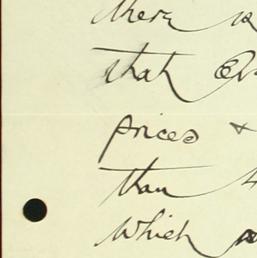 there is
that
prices +
than
which